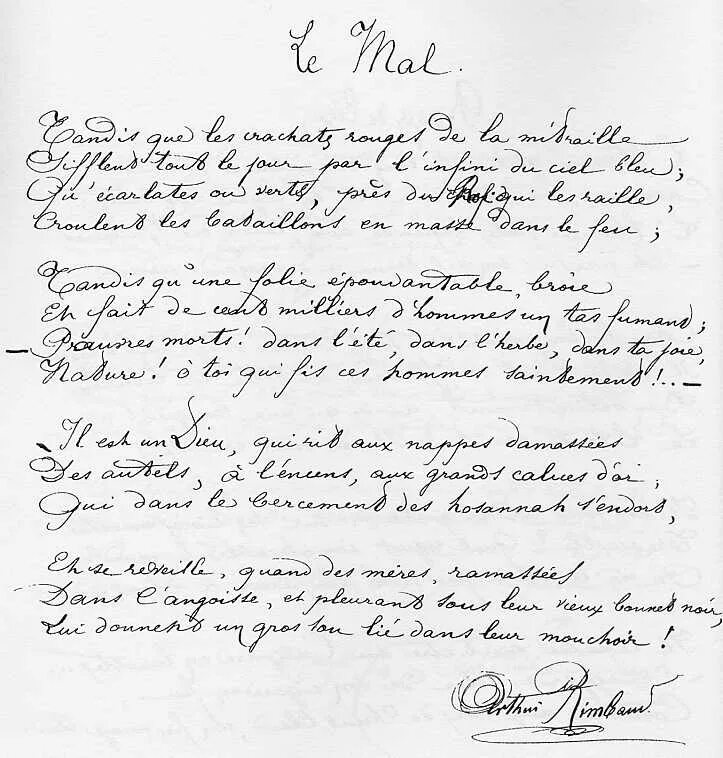 Le Mal.
Tandis que les crachats rouges de la mitraille
Sifflent tout le jour par l'infini du ciel bleu;
Qu'écarlates ou verts, près du Roi qui les raille,
Croulent les bataillons en masse dans le feu;
Tandis qu'une folie épouvantable, broie
Et fait de cent milliers d'hommes un tas fumant;
— Pauvres morts! dans l'été, dans l'herbe, dans ta joie,
Nature! ô toi qui fis ces hommes saintement!.. —
- Il est un Dieu, qui rit aux nappes damassées
Des autels, à l'encens, aux grands calices d'or;
Qui dans le bercement des hosannah s'endort,
Et se réveille, quand des mères, ramassées
Dans l'angoisse, et pleurant sous leur vieux bonnet noir,
Lui donnent un gros sou lié dans leur mouchoir!
Arthur Rimbaud